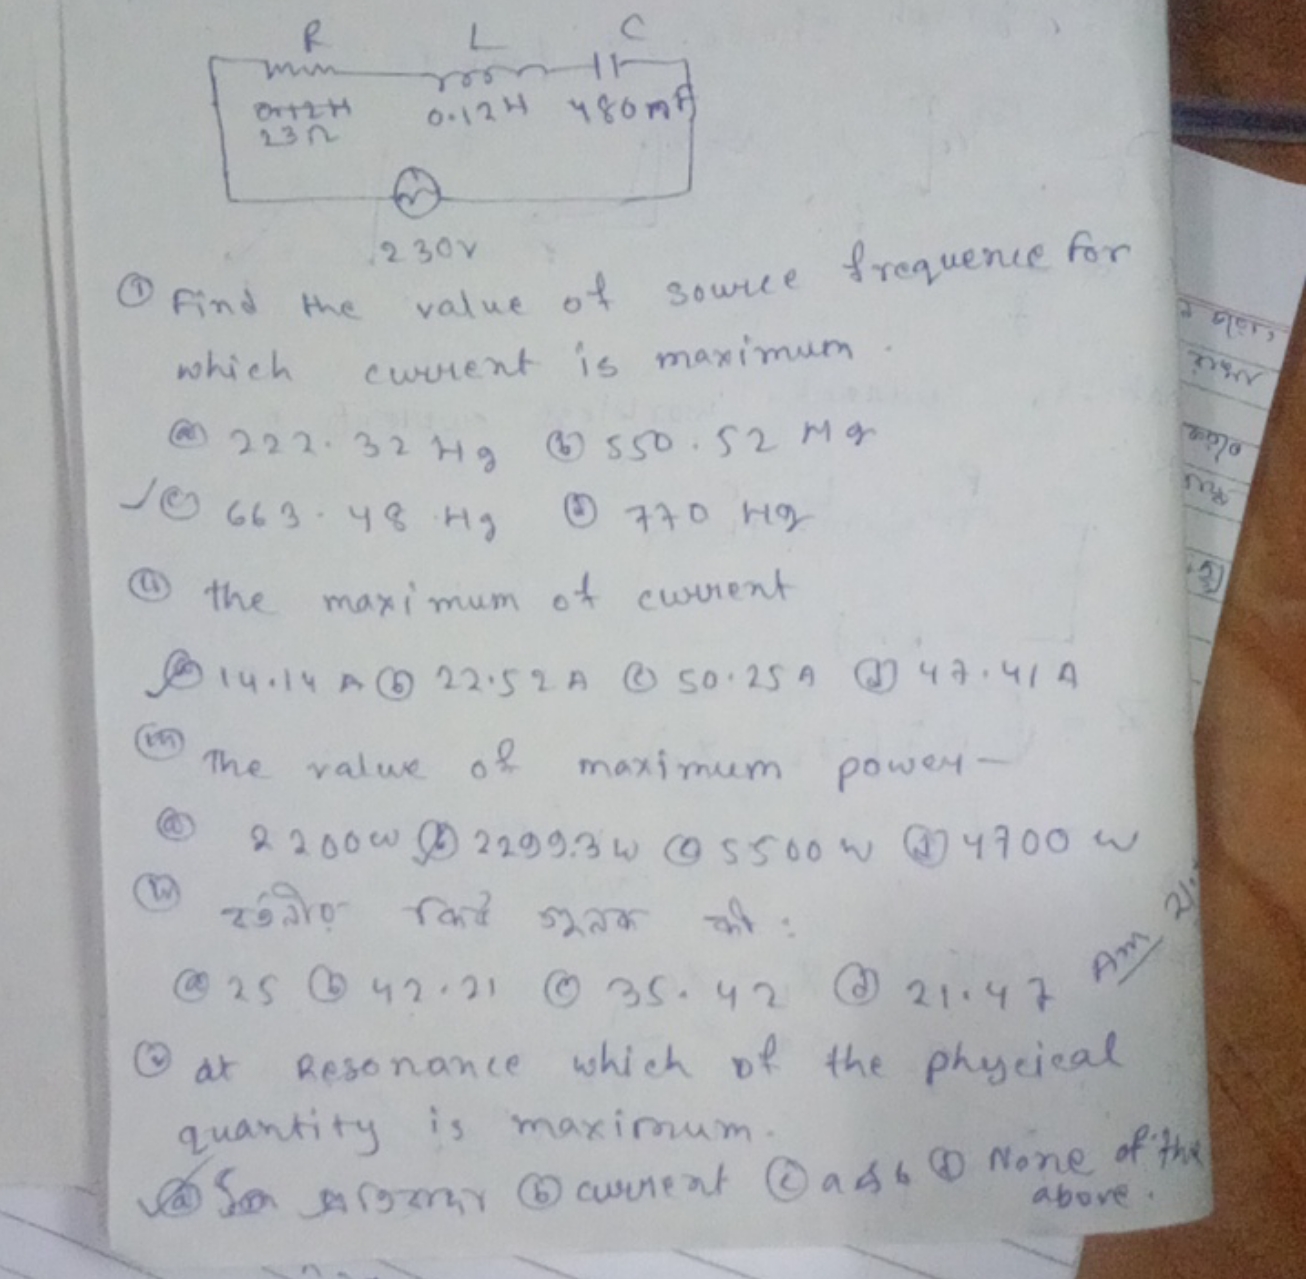 R L C
23Ω 0.12H 480nF
230V
① Find the value of source frequence for
which current is maximum.
ⓐ 222.32 Hz ⓑ 550.52 Hz
ⓒ 663.48 Hz ⓓ 770 Hz
ⓘⓘ the maximum of current
ⓐ 14.14 A ⓑ 22.52 A ⓒ 50.25 A ⓓ 47.41 A
(iii) The value of maximum power—
ⓐ 2200 W ⓑ 2299.3 W ⓒ 5500 W ⓓ 4700 W
(iv)
ⓐ 25 ⓑ 42.21 ⓒ 35.42 ⓓ 21.47 Am
(v) at Resonance which of the phycical
quantity is maximum.
ⓐ ⓑ current ⓒ a & b ⓓ None of the
above.